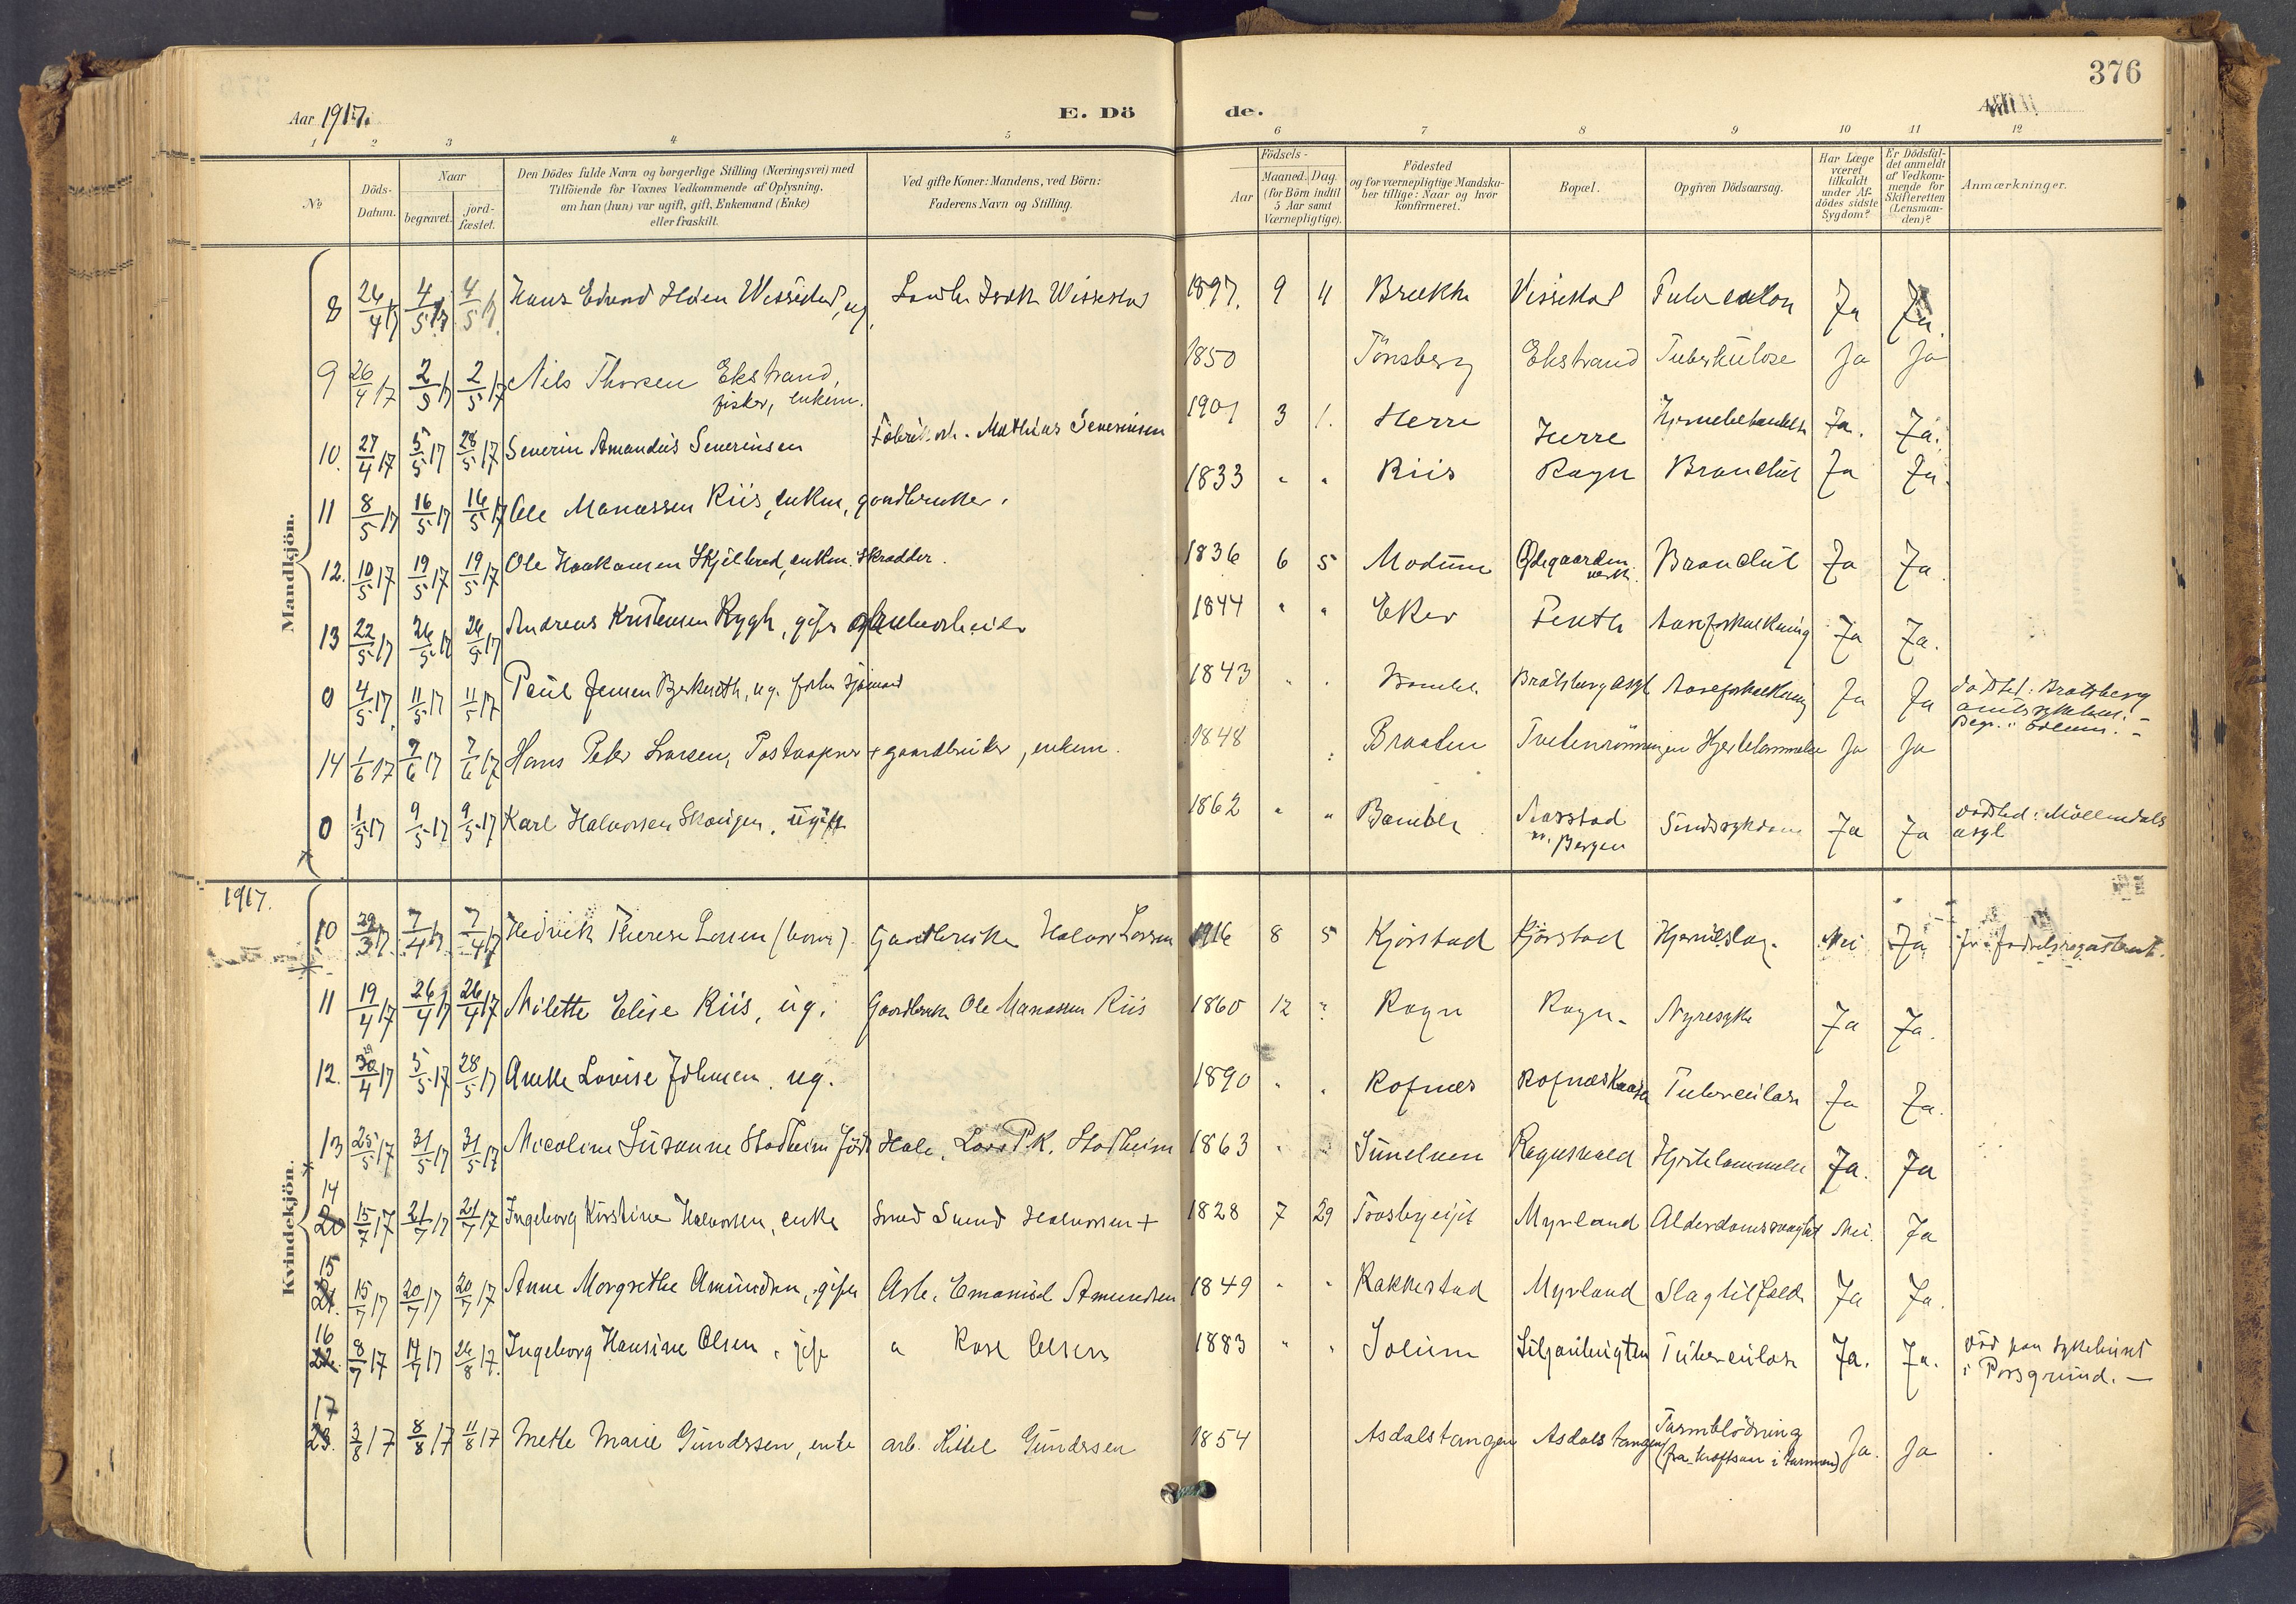 376
Aar 1917.
E. Döde.
1 2 3 4 5 6 7 8 9 10 11 12
№
Döds-Datum.
Naar
begravet.
jord-fæstet.
Den Dödes fulde Navn og borgerlige Stilling (Næringsvei) med
Tilföiende for Voxnes Vedkommende af Oplysning,
om han (hun) var ugift, gift, Enkemand (Enke)
eller fraskilt.
Ved gifte Koner: Mandens, ved Börn:
Faderens Navn og Stilling.
Födsels-
Aar
Maaned. Dag.
(for Börn indtil
5 Aar samt
Værnepligtige).
Födested
og for værnepligtige Mandska-
ber tillige: Naar og hvor
konfirmeret.
Bopæl.
Opgiven Dödsaarsag.
Har Læge
været
tilkaldt
under Af-
dödes sidste
Sygdom?
Er Dödsfal-
det anmeldt
af Vedkom-
mende for
Skifteretten
(Lensman-
den)?
Anmærkninger.
Mandkjön.
8 26/4 17 4/5 17 4/5 17 Hans Edvard Wissestad, ug. Isak Wissestad 1897. 9 11 Brekke Vissestad Tuberculose Ja Ja.
9 26/4 17 2/5 17 2/5 17 Nils Thorsen Ekstrand, fisker, enkem. 1850 Tönsberg Ekstrand Tuberkulose Ja Ja
10. 27/4 17 5/5 17 28/5 17 Severin Amandus Severinsen Fabrikarb. Mathias Severinsen 1901 3 1. Herre Herre Hjernebetændelse Ja. Ja.
11 8/5 17 16/5 17 16/5 17 Ole Manassen Riis, enkem, gaardbruker. 1833 " " Riis Rogn Bronchit Ja Ja.
12. 10/5 17 19/5 17 19/5 17 Ole Haakonsen Skjelbred, enkem. Skrædder. 1836 6 5 Modum Ødegaardens verk. Bronchit Ja Ja.
13 22/5 17 26/5 17 26/5 17 Andreas Kristensen Rygh, gift 1844 " " Eker Feuth Aareforkalkning Ja Ja.
0 4/5 17 11/5 17 11/5 17 Paul Jensen, ug. forh. sjömand 1843 " " Bamble Bratsberg asyl Aareforkalkning Ja Ja Dödsted: Bratsberg amtssykehus. - Begr. i Solum. -
14 1/6 17 7/6 17 7/6 17 Hans Peter Larsen, Postaapner + gaardbruker, enkem. 1848 " Braaten Tvetenrönningen Hjertelammelse Ja Ja
0 1/5 17 9/5 17 9/5 17 Karl Halvorsen Skougen, ugift 1862 " " Bamble Aarstad pr. Bergen Sindssykdom Ja Ja Dödsted: Möllendals asyl
1917.
Kvindekjön.
10 29/3 17 7/4 17 7/4 17 Hedvik Therese Larsen (barn). Gaardbruker Halvor Larsen 1916 8 5 Kjörstad Kjörstad Hjerneslag. Nei Ja
11 19/4 17 26/4 17 26/4 17 Milette Elise Riis, ug. Gaardbruker Ole Manassen Riis 1860 12 " Rogn Rogn. Nyresyke Ja Ja.
12. 30/4 17 5/5 17 28/5 17 Anette Lovise Johnsen. ug. 1890 " " Rofnes Rofneskaasa Tuberculose Ja Ja.
13 25/5 17 31/5 17 31/5 17 Nicoline Susanne Stadheim född Hale, Lars P.K. Stadheim 1863 " " Sunelven Rognsvald Hjertelammelse Ja. Ja
14 15/7 17 21/7 17 21/7 17 Ingeborg Kirstine Halvorsen, enke Smed Svend Halvorsen + 1828 7 29 Trosbyeijet Myrland Alderdomssvaghet Nei. Ja
15 15/7 17 20/7 17 20/7 17 Anne Margrethe Amundsen, gift Arb. Emanuel Amundsen 1849 " " Rakkestad Myrland Slagtilfælde Ja Ja.
16 8/7 17 14/7 17 26/8 17. Ingeborg Hansine Olsen, gift " Karl Olsen 1883 " " Solum Tuberculose Ja. Ja. Död paa sykehuset i Porsgrund. -
17 3/8 17 8/8 17 11/8 17 Mette Marie Gundersen, enke arb. Kittel Gundersen 1854 Asdalstangen Asdalstangen Tarmblödning (fra kræftsaar i tarmene) Ja. Ja